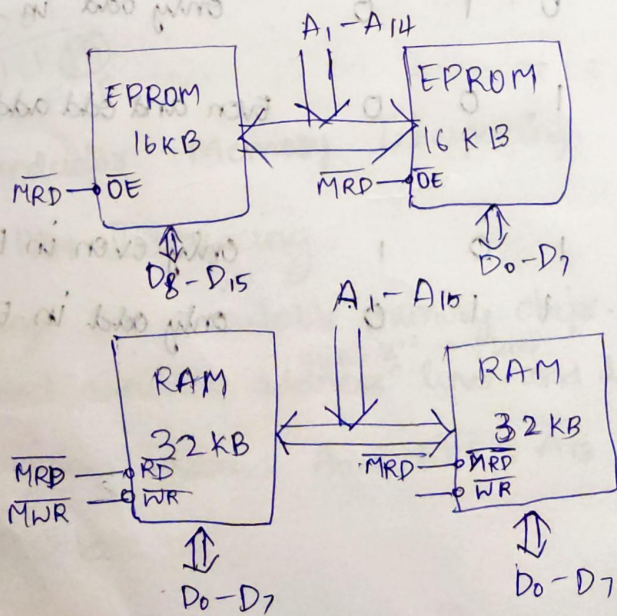 A1-A14
EPROM
16KB
M̅R̅D̅
O̅E̅
D8-D15
EPROM
16 KB
M̅R̅D̅
O̅E̅
D0-D7
A1-A15
RAM
32 KB
M̅R̅D̅
R̅D̅
M̅W̅R̅
W̅R̅
D0-D7
RAM
32 KB
M̅R̅D̅
M̅R̅D̅
W̅R̅
D0-D7